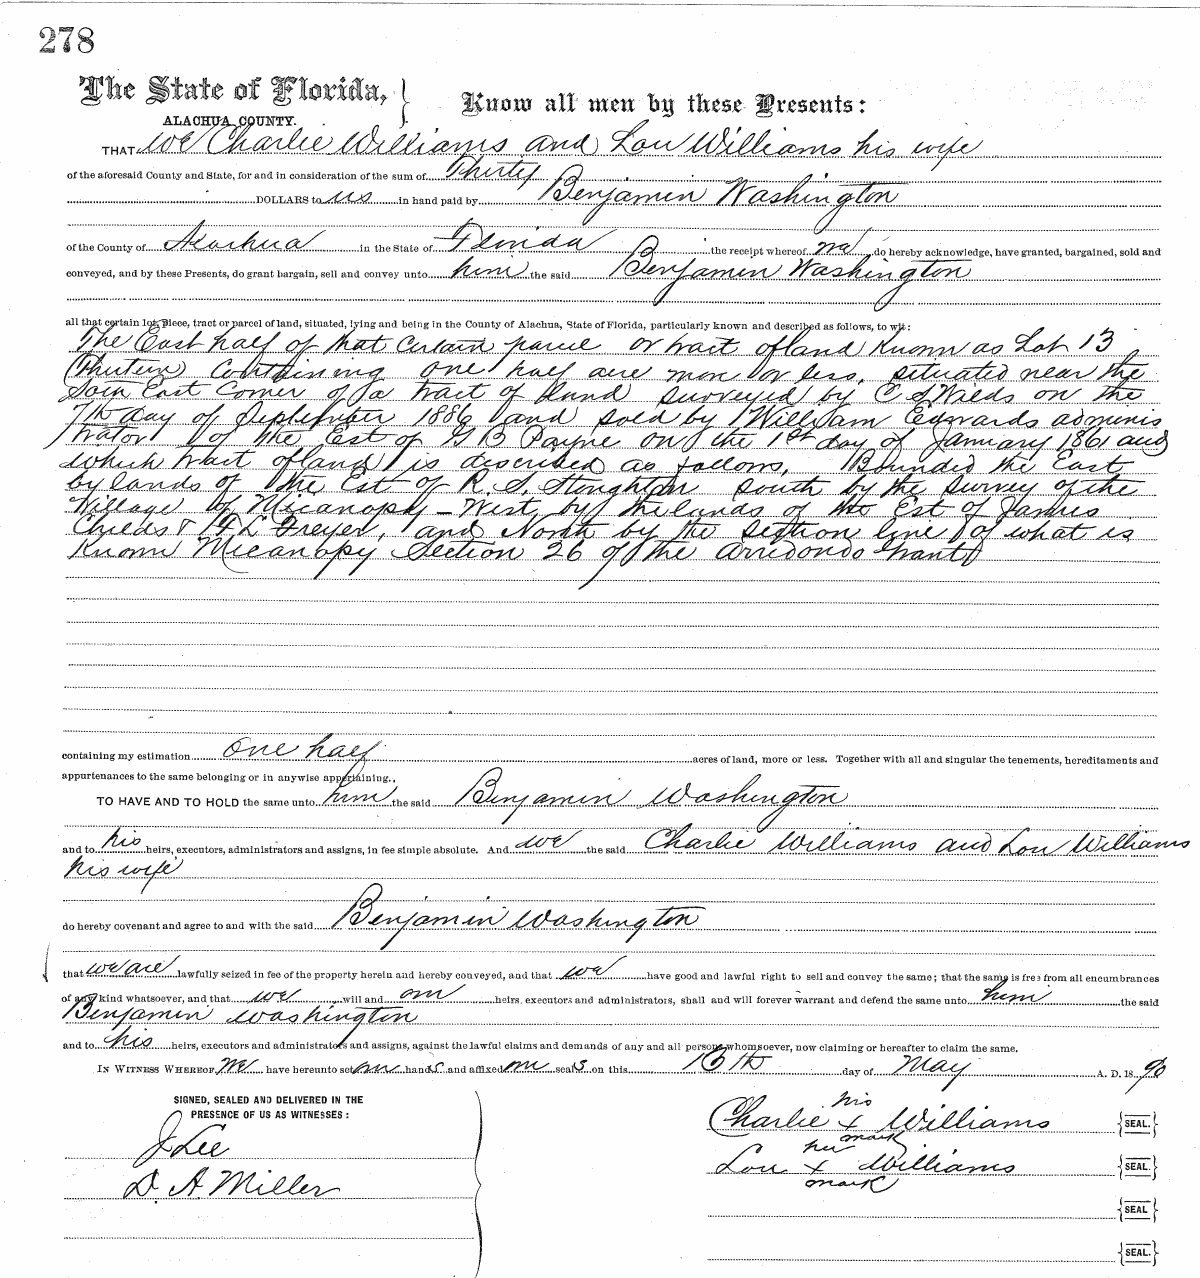 278
The State of Florida,
ALACHUA COUNTY.
Know all men by these Presents:
THAT we Charlie Williams and Lou Williams his wife
of the aforesaid County and State, for and in consideration of the sum of Thirty
DOLLARS to us in hand paid by Benjamin Washington
of the County of Alachua in the State of Florida the receipt whereof we do hereby acknowledge, have granted, bargained, sold and
conveyed, and by these Presents, do grant bargain, sell and convey unto him the said Benjamin Washington
all that certain lot, piece, tract or parcel of land, situated, lying and being in the County of Alachua, State of Florida, particularly known and described as follows, to wit:
The East half of that certain parcel or tract of land Known as Lot 13
(Thirteen) Containing one half acre more or less, situated near the
East Corner of a tract of land surveyed by on the
7th day of September 1886 and sold by William Edwards adminis
trator of the Est of Payne on the 1st day of January 1861 and
which tract of land is described as follows, Bounded the East
by lands of the Est of R. S. Stoughton south by the survey of the
Village of Micanopy - West, by the lands of the Est of James
Childs & and North by the section line of what is
Known Micanopy Section 26 of the Arredondo Grant
containing my estimation one half acres of land, more or less. Together with all and singular the tenements, hereditaments and
appurtenances to the same belonging or in anywise appertaining.,
TO HAVE AND TO HOLD the same unto him the said Benjamin Washington
and to his heirs, executors, administrators and assigns, in fee simple absolute. And we the said Charlie Williams and Lou Williams
his wife
do hereby covenant and agree to and with the said Benjamin Washington
that we are lawfully seized in fee of the property herein and hereby conveyed, and that we have good and lawful right to sell and convey the same; that the same is free from all encumbrances
of any kind whatsoever, and that we will and our heirs, executors and administrators, shall and will forever warrant and defend the same unto him the said
Benjamin Washington
and to his heirs, executors and administrators and assigns, against the lawful claims and demands of any and all persons whomsoever, now claiming or hereafter to claim the same.
IN WITNESS WHEREOF We have hereunto set our hands and affixed our seals on this day of May A. D. 1890
SIGNED, SEALED AND DELIVERED IN THE
PRESENCE OF US AS WITNESSES:
J Lee
D. A. Miller
his
Charlie x Williams {SEAL.}
mark
her
Lou x Williams {SEAL.}
mark
{SEAL}
{SEAL.}